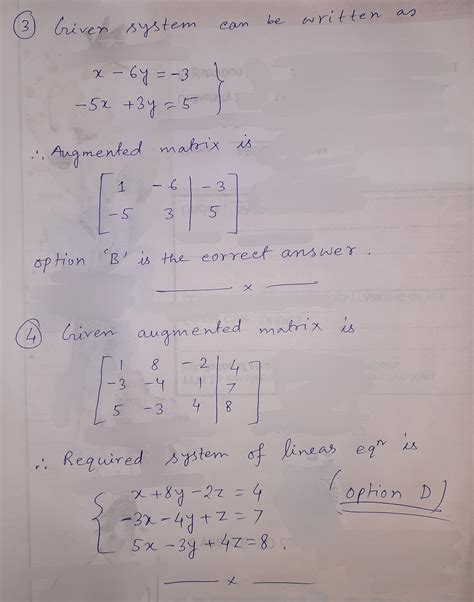 ③ Given system can be written as
x - 6y = -3
-5x + 3y = 5 }
∴ Augmented matrix is
[ 1 -6 | -3 ]
[ -5 3 | 5 ]
option 'B' is the correct answer.
x
④ Given augmented matrix is
[ 1 8 -2 | 4 ]
[ -3 -4 1 | 7 ]
[ 5 -3 4 | 8 ]
∴ Required system of linear eqⁿ is
{ x + 8y - 2z = 4
-3x - 4y + z = 7
5x - 3y + 4z = 8 .
(option D)
x